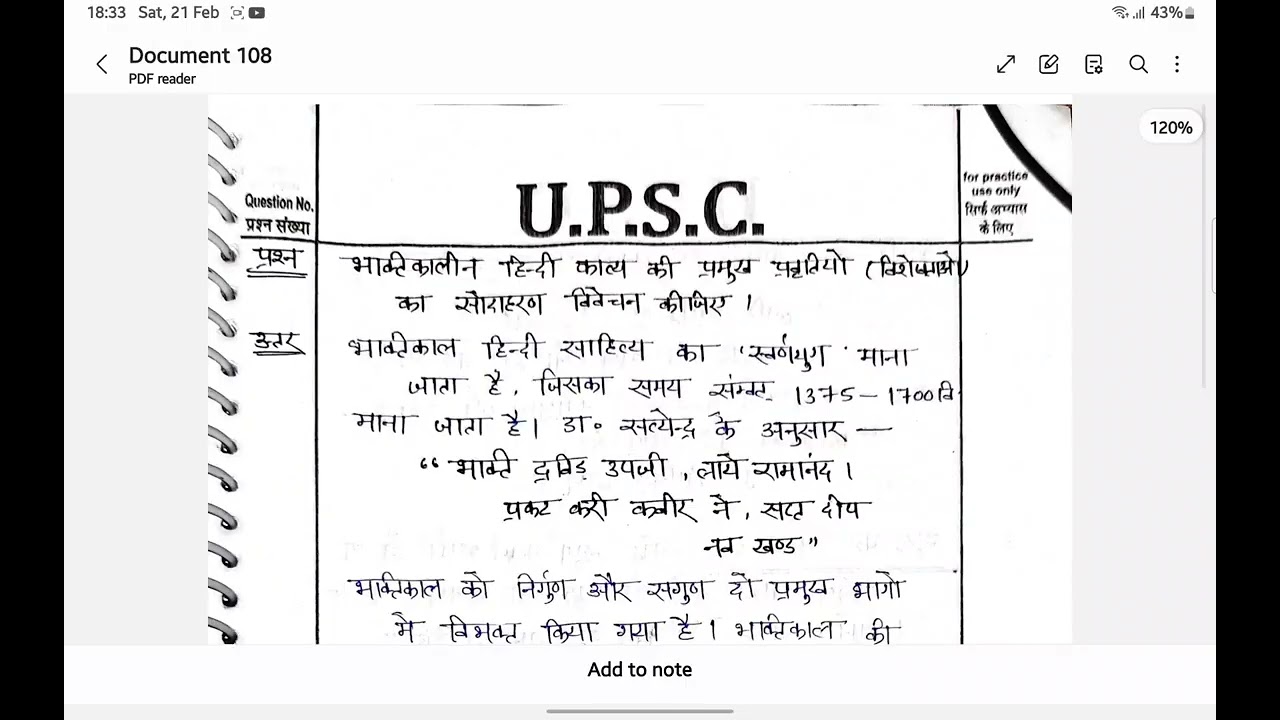 18:33 Sat, 21 Feb 43%
Document 108
PDF reader
120%
for practice
use only
सिर्फ अभ्यास
के लिए
U.P.S.C.
Question No.
प्रश्न संख्या
प्रश्न भाक्तिकालीन हिन्दी काव्य की प्रमुख प्रवृतियो (विशेषताओ)
का सोदाहरण विवेचन कीजिए ।
उत्तर भाक्तिकाल हिन्दी साहित्य का 'स्वर्णयुग' माना
जाता है, जिसका समय संम्वत् 1375 – 1700 वि.
माना जाता है। डा० सत्येन्द्र के अनुसार —
“ भाक्ति द्रविड़ उपजी , लाये रामानंद ।
प्रकट करी कबीर ने , सप्त दीप
नव खण्ड ”
भाक्तिकाल को निर्गुण और सगुण दो प्रमुख भागो
मे विभक्त किया गया है । भाक्तिकाल की
Add to note